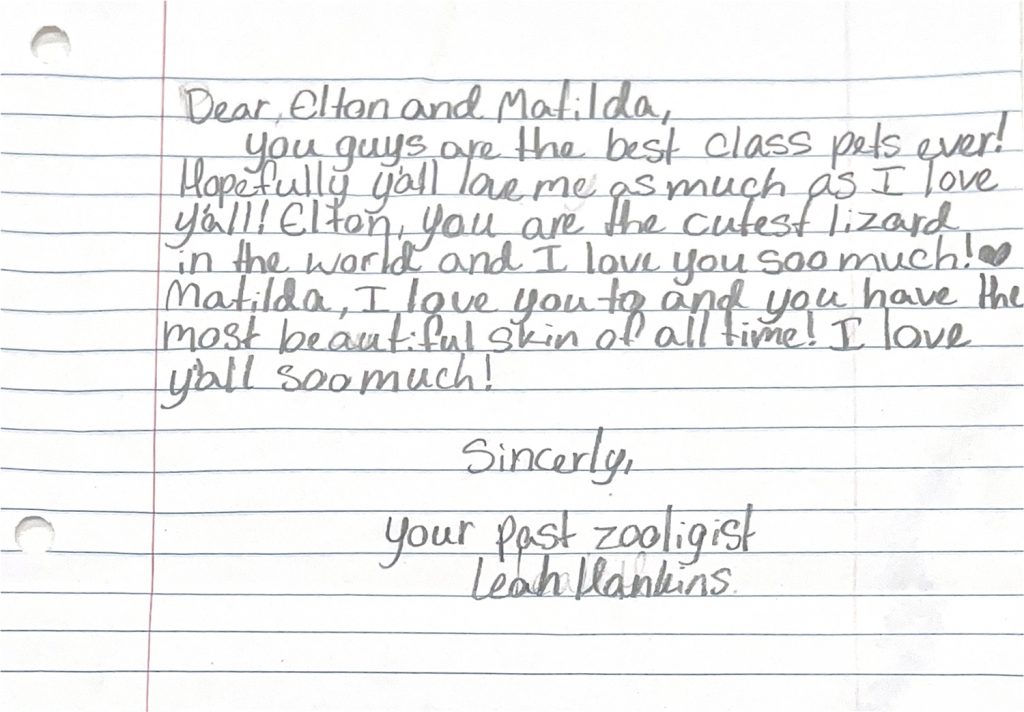 Dear, Elton and Matilda,
you guys are the best class pets ever!
Hopefully y'all love me as much as I love
y'all! Elton, you are the cutest lizard
in the world and I love you soo much! ♥
Matilda, I love you to and you have the
most beautiful skin of all time! I love
y'all soo much!
Sincerly,
your past zooligist
Leah Hankins